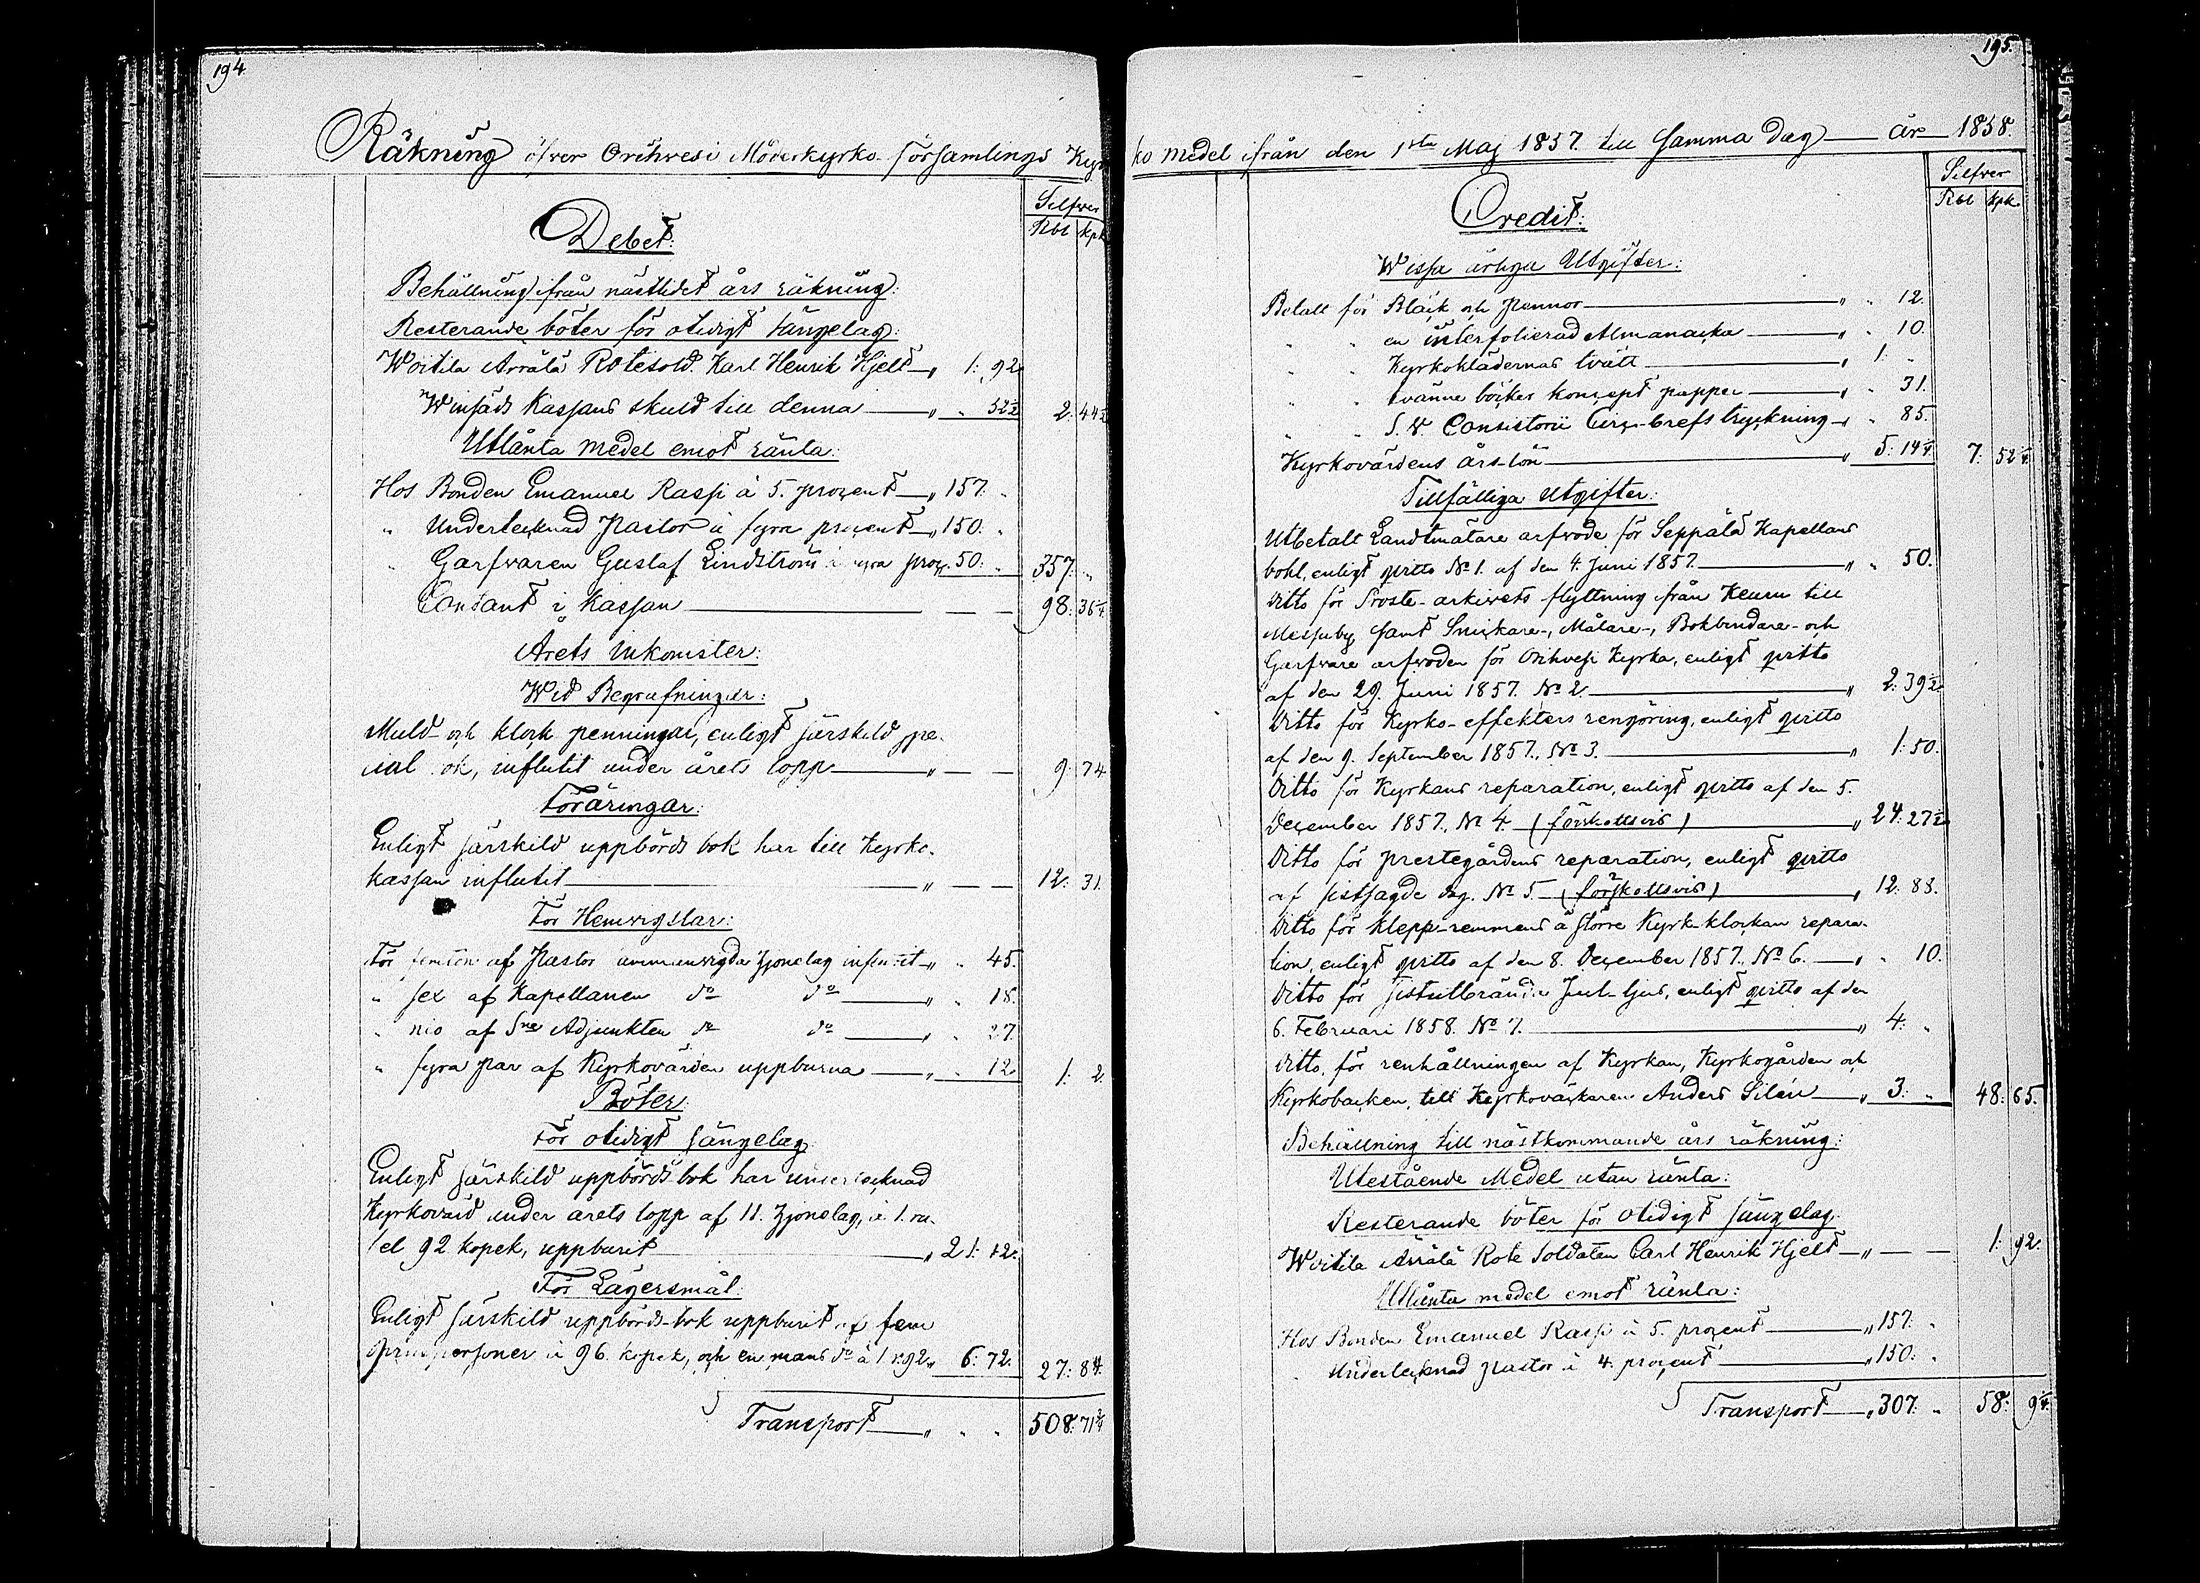 194
Räkning öfver Orihvesi Moderkyrko-församlings Kyr
Silfver
Rbl kpk
Debet:
Behållning ifrån nästlidet års räkning:
Resterande böter för otidigt sängelag:
Woitila Arrälä Rotesold. Karl Henrik Hjelt — „ 1: 92
Winfäds Kassans skuld till denna — „ „ 52½ 2: 44½
Utlånta medel emot ränta:
Hos Bonden Emanuel Rassi à 5. procent — „ 157. „
„ Undertecknad Pastor à fyra procent — „ 150. „
„ Garfvaren Gustaf Lindström à fyra proc. 50: „ 357: „
Contant i kassan — — — 98: 36¼
Årets Inkomster:
Wid Begrafningar:
Muld- och klock penningar, enligt särskild spe-
cial bok, influtit under årets lopp — „ — — 9: 74
Föräringar:
Enligt särskild uppbörds bok har till Kyrko-
kassan influtit — „ — — 12: 31.
För Hemvigslar:
För femton af Pastor sammanvigda hjonelag influtit „ „ 45.
„ sex af Kapellanen do do — „ „ 18.
„ nio af Sne Adjunkten do do — „ „ 27.
„ fyra par af Kyrkovärden uppburna — „ „ 12 1: 2.
Böter:
För otidigt sängelag:
Enligt särskild uppbörds bok har undertecknad
Kyrkovärd under årets lopp af 11. hjonelag, à 1. ru-
bel 92 kopek, uppburit — „ 21: 12.
För Lägersmål:
Enligt särskild uppbörds-bok uppburit af fem
qvinspersoner à 96. kopek, och en mans do à 1 r. 92 „ 6: 72. 27: 84.
Transport — „ „ „ 508: 71¾
195.
ko medel ifrån den 1sta Maj 1857. till samma dag — år — 1858.
Silfver
Rbl kpk
Credit:
Wissa årliga Utgifter:
Betalt för Bläck och Pennor — „ „ 12.
„ „ en interfolierad Almanacka — „ „ 10.
„ „ Kyrkoklädernas tvätt — „ 1: „
„ „ tvänne böcker koncept papper — „ „ 31.
„ „ S. V. Consistorii Circ.-brefs tryckning — „ „ 85.
Kyrkovärdens års-lön — „ 5: 14¼ 7: 52¼
Tillfälliga Utgifter:
Utbetalt Landtmätare arfvode för Seppälä Kapellans
bohl, enligt qvitto No 1. af den 4. Juni 1857. — „ „ 50.
Ditto för Proste-arkivets flyttning från Keuru till
Messuby samt Snickare-, Målare-, Bokbindare- och
Garfvare arfvoden för Orihvesi Kyrka, enligt qvitto
af den 29. Juni 1857. No 2 — „ 2: 39½
Ditto för Kyrko-effekters rengöring, enligt qvitto
af den 9. September 1857., No 3. — „ 1: 50.
Ditto för Kyrkans reparation, enligt qvitto af den 5.
December 1857., No 4. (förskottsvis) — „ 24: 27½
Ditto för prestegårdens reparation, enligt qvitto
af sistsagde dag. No 5. (förskottsvis) — „ 12: 88.
Ditto för klepp-remmens å större Kyrk-klockan repara-
tion, enligt qvitto af den 8. December 1857. No 6. — „ „ 10.
Ditto för sistutbrända Jul-ljus, enligt qvitto af den
6. Februari 1858. No 7. — „ 4: „
Ditto, för renhållningen af Kyrkan, Kyrkogården och
Kyrkobacken, till Kyrkoväckaren Anders Silén — „ 3: „ 48: 65.
Behållning till nästkommande års räkning:
Utestående Medel utan ränta:
Resterande böter för otidigt sängelag:
Woitila Arrälä Rote Soldaten Carl Henrik Hjelt — „ — — 1: 92.
Utlånta medel emot ränta:
Hos Bonden Emanuel Rassi à 5. procent — „ 157: „
„ Undertecknad Pastor à 4. procent — „ 150: „
Transport — „ 307. „ 58: 9¼.